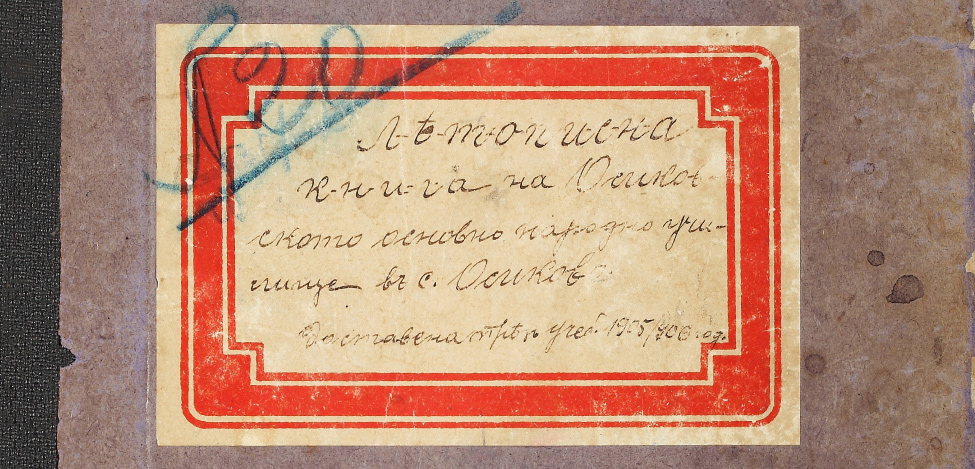 Лѣтописна
книга на Осиков-
ското основно народно учи-
лище въ с. Осиково
Доставена прѣзъ учеб. 1905/906 год.